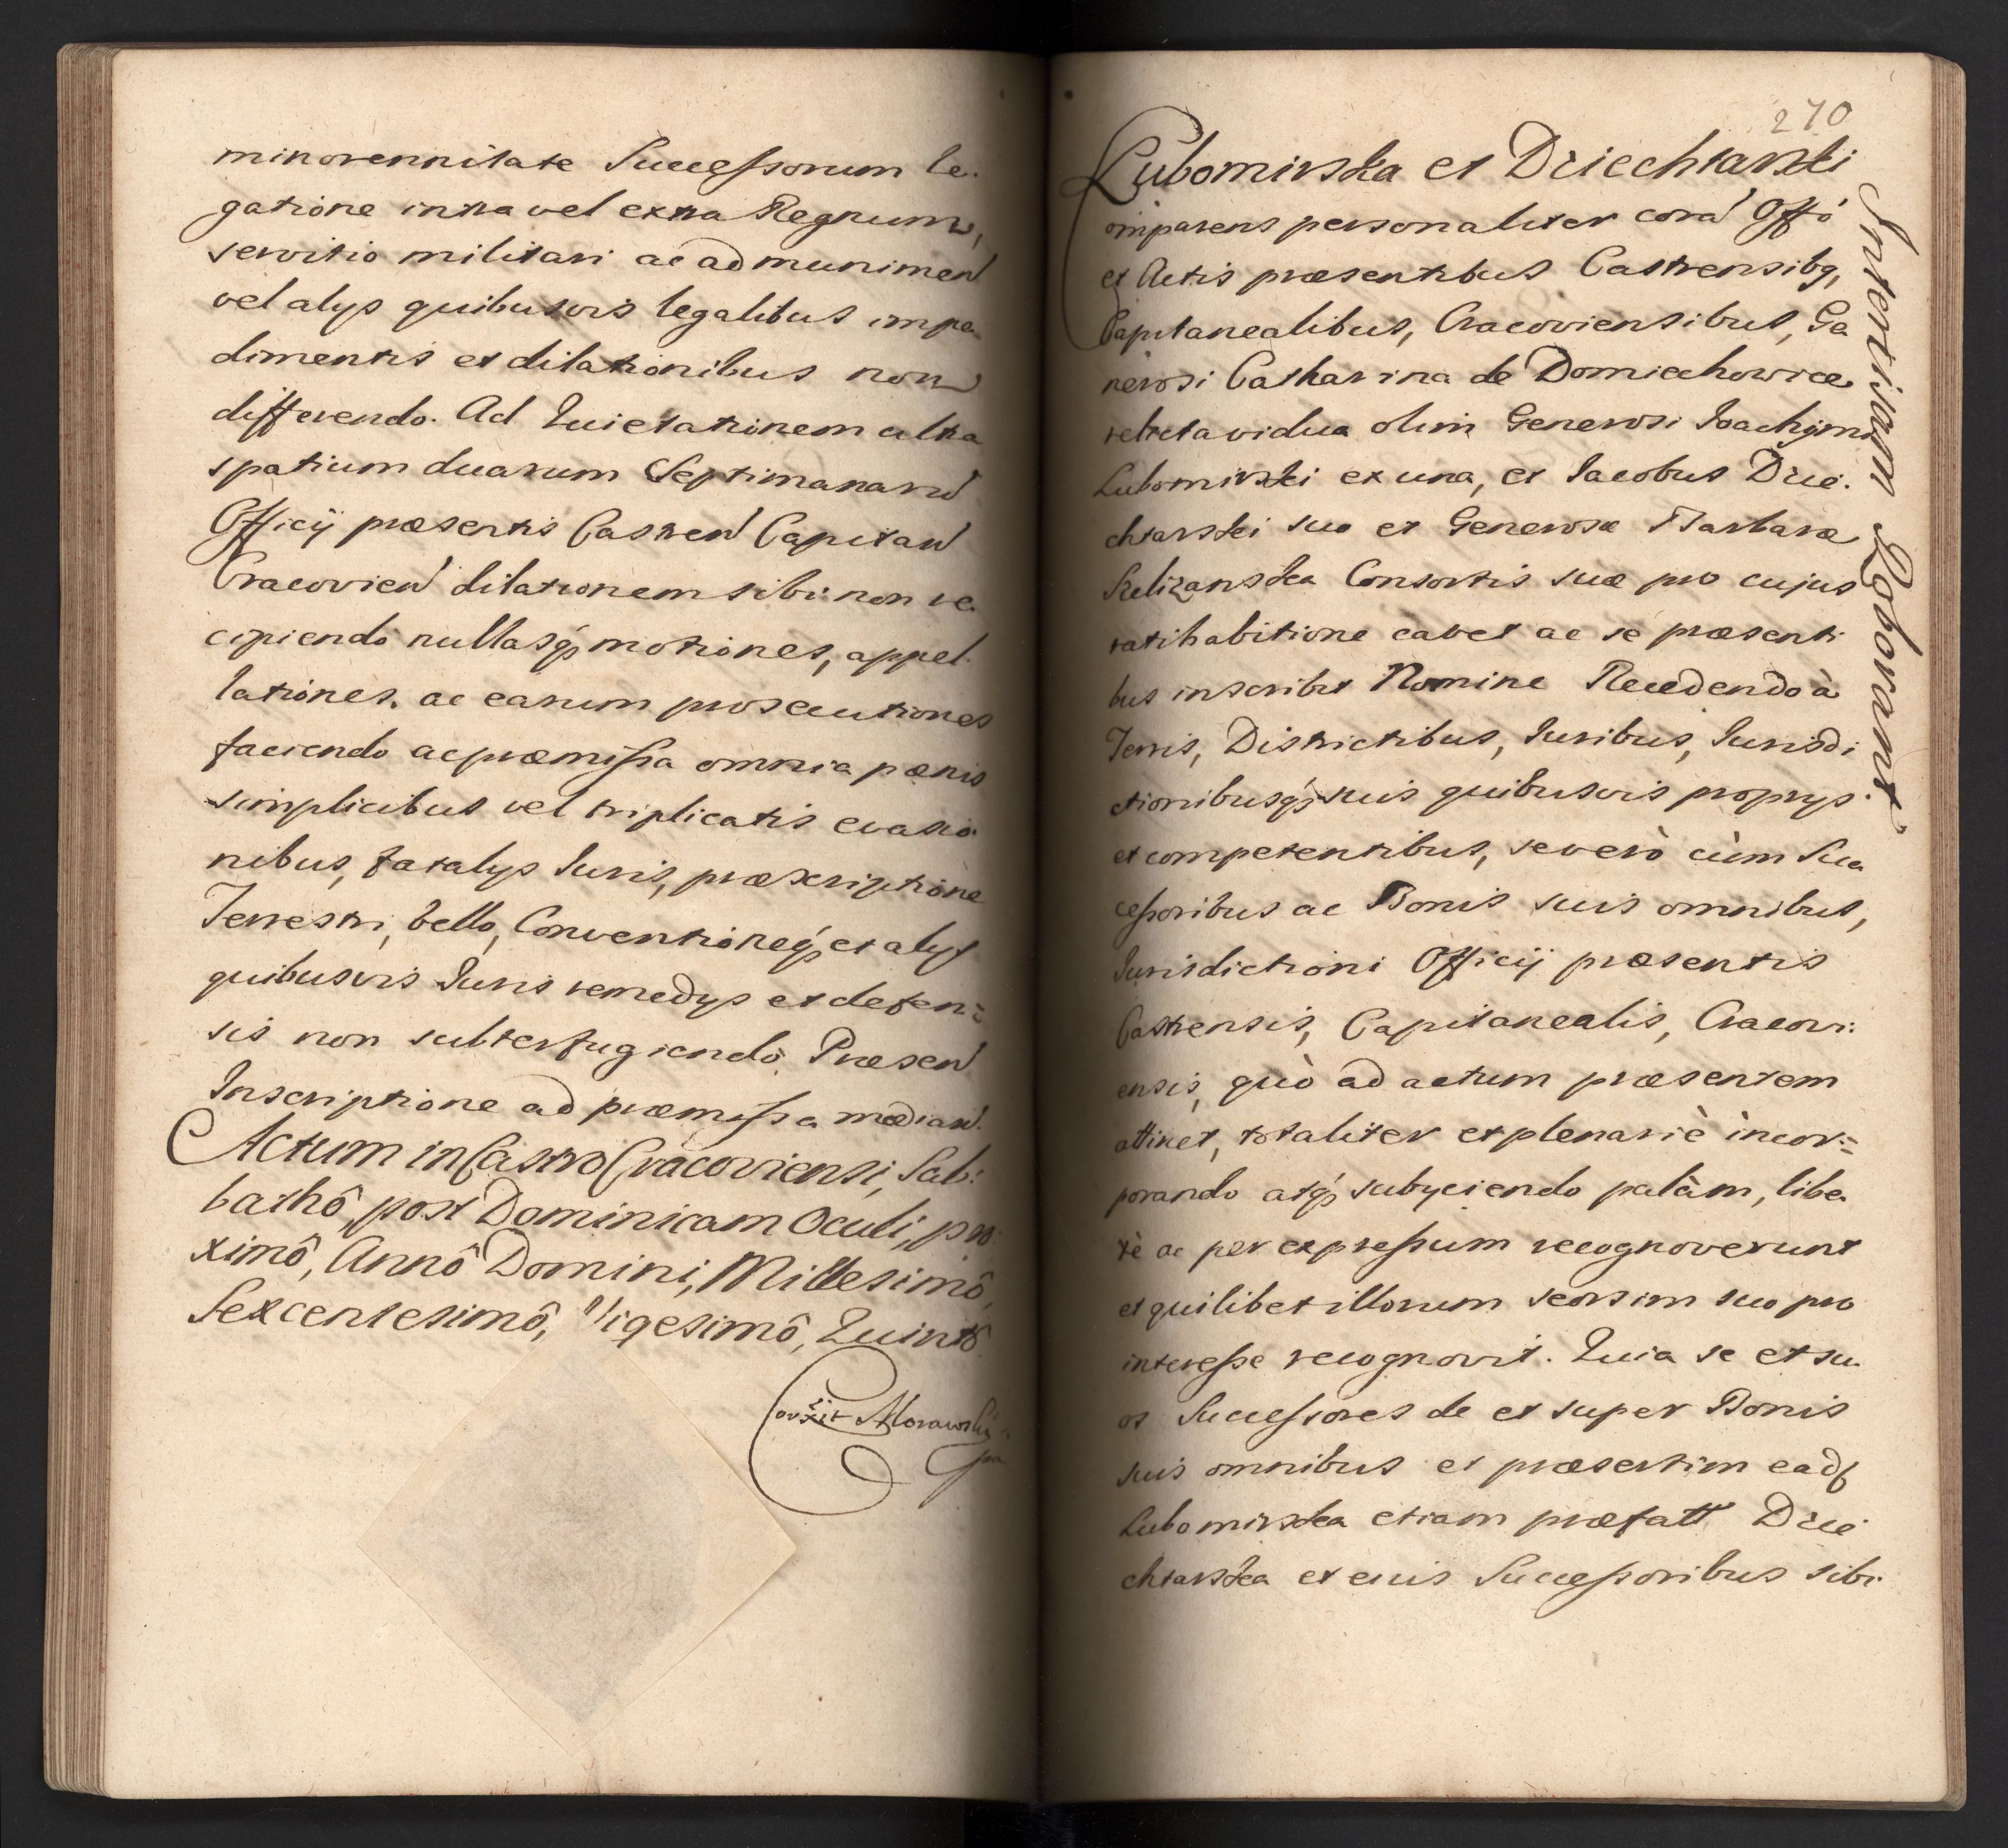 minorennitate Successorum le-
gatione intra vel extra Regnum,
servitio militari ac ad munimen
vel alys quibusvis legalibus impe
dimentis et dilationibus non
differendo. Ad Quietationem ultra
spatium duarum Septimanaru
Officij præsentis Castren Capitan
Cracovien dilationem sibi non re
cipiendo nullasq3 motiones, appel-
lationes, ac earum prosecutiones
faciendo ac præmissa omnia pænis
simplicibus vel triplicatis evasio
nibus, fatalys Iuris, præscriptione
Terrestri, bello, Conventioneq3 et alys
quibusvis Iuris remedys et defen=
sis non subterfugiendo. Præsen
Inscriptione ad præmissa median.
Actum in Castro Cracoviensi, Sab:
bathô, post Dominicam Oculi, pro
ximô, Annô Domini, Millesimô,
Sexcentesimô, Vigesimô, Quintô.
Morawski
270
Lubomirska et Dziechtarski
omparens personaliter cora Offo
et Actis præsentibus Castrensibq,
Capitanealibus, Cracoviensibus, Ge
nerosi Catharina de Domiechowice
relicta vidua olim Generosi Ioachymi
Lubomirski ex una, et Iacobus Dzie-
chtarski suo et Generosæ Barbaræ
Consortis suæ pro cujus
ratihabitione cavet ac se præsenti
bus inscribit Nomine Recedendo à
Terris, Districtibus, Iuribus, Iurisdi
ctionibusq3 suis quibusvis proprys
et competentibus, se verò cùm Suc
cessoribus ac Bonis suis omnibus,
Iurisdictioni Officij præsentis
Castrensis, Capitanealis, Cracovi:
ensis, quò ad actum præsentem
attinet, totaliter et plenariè incor=
porando atq3 subyciendo palàm, libe
rè ac per expressum recognoverunt
et quilibet illorum seorsim suo pro
interesse recognovit. Quia se et su
os Successores de et super Bonis
suis omnibus et præsertim ead
Lubomirska etiam præfatt Dzie
chtarska et eius Successoribus sibi
Intertiam Roborant